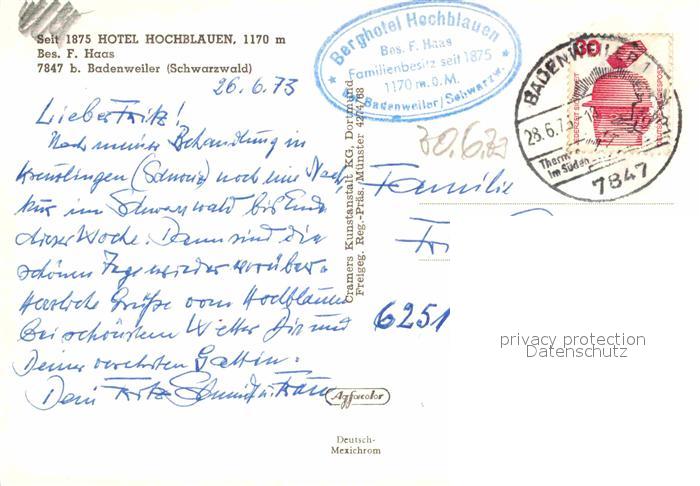 Seit 1875 HOTEL HOCHBLAUEN, 1170 m
Bes. F. Haas
7847 b. Badenweiler (Schwarzwald)
26.6.73
Lieber Fritz!
Nach meiner Behandlung in
Kreuzlingen (Schweiz) noch eine Nach-
kur im Schwarzwald bis Ende
dieser Woche. Dann sind die
schönen Tage wieder vorüber.
Herzliche Grüße vom Hochblauen
bei schönstem Wetter Dir und
Deiner verehrten Gattin.
Dein Fritz Schmidt u. Frau
Cramers Kunstanstalt KG, Dortmund
Freigeg. Reg.-Präs./Münster 4274/68
Berghotel Hochblauen
Bes. F. Haas
Familienbesitz seit 1875
1170 m.ü.M.
Badenweiler/Schwarzw.
30.6.73
BADENWEILER 1
28.6.73
Therm
im Süden
7847
60
Familie
Fri
6251
privacy protection
Datenschutz
Agfacolor
Deutsch-
Mexichrom